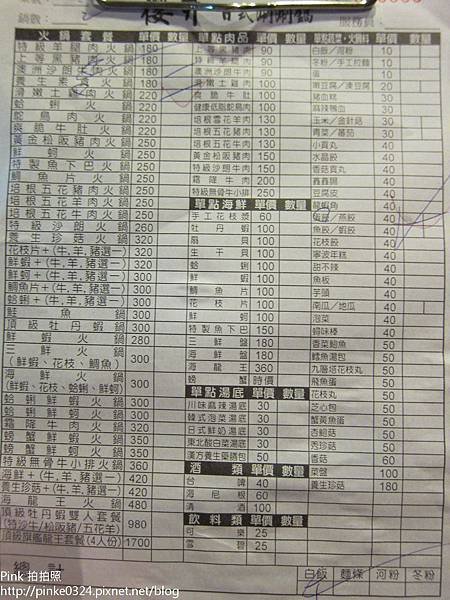 櫻井 日式涮涮鍋
火鍋套餐 單價 數量
特級羊腿肉火鍋 180
上等黑豬肉火鍋 180
澳洲沙朗牛肉火鍋 180
養生素食火鍋 180
滑嫩土雞肉火鍋 220
蛤蜊火鍋 220
鴕鳥肉火鍋 220
爽脆牛肚火鍋 220
黃金松阪豬火鍋 250
鮮蚵火鍋 250
特製魚下巴火鍋 250
鯛魚片火鍋 250
培根五花豬肉火鍋 250
培根五花羊肉火鍋 250
培根五花牛肉火鍋 250
特級沙朗火鍋 260
養生珍菇火鍋 320
花枝片+(牛.羊.豬選一) 320
鮮蝦+(牛.羊.豬選一) 320
鮮蚵+(牛.羊.豬選一) 300
鯛魚片+(牛.羊.豬選一) 300
蛤蜊+(牛.羊.豬選一) 300
鮭魚火鍋 300
頂級牡丹蝦火鍋 300
鮮蝦火鍋 280
三鮮火鍋
(鮮蝦、花枝、鯛魚) 300
海鮮火鍋
(鮮蝦、花枝、蛤蜊、鮮蚵) 300
蛤蜊鮮蝦火鍋 300
蛤蜊鮮蚵火鍋 300
霜降牛肉火鍋 300
螃蟹鮮蝦火鍋 350
螃蟹鮮蚵火鍋 350
特級無骨牛小排火鍋 360
海鮮+(牛.羊.豬選一) 420
養生珍菇+(牛.羊.豬選一) 420
海龍王火鍋 480
頂級牡丹蝦雙人套餐
(特沙牛/松阪豬/五花羊) 980
頂級旗艦龍王套餐(4人份) 1700
總計
單點肉品 單價 數量
上等黑豬肉 90
特級羊腿肉 90
澳洲沙朗牛肉 90
滑嫩土雞肉 100
爽脆牛肚 100
健康低脂鴕鳥肉 100
培根雪花羊肉 150
培根五花豬肉 150
培根五花牛肉 150
黃金松阪豬肉 150
特級沙朗牛肉 150
霜降牛肉 200
特級無骨牛小排 250
單點海鮮 單價 數量
手工花枝漿 60
牡丹蝦 100
扇貝 100
生干貝 100
蛤蜊 100
鮮蝦 100
鯛魚片 100
花枝片 100
鮮蚵 100
特製魚下巴 150
三鮮盤 180
海鮮盤 180
海龍王 360
螃蟹 時價
單點湯底 單價 數量
川味麻辣湯底 30
韓式泡菜湯底 30
日式鮮奶湯底 30
東北酸白菜湯底 30
漢方養生藥膳包 50
酒類 單價 數量
台啤 40
海尼根 60
清酒 100
飲料類 單價 數量
可樂 25
雪碧 25
單價 數量
白飯/河粉 10
冬粉/手工拉麵 10
蛋 10
嫩豆腐/凍豆腐 20
豬血糕 30
麻辣鴨血 30
玉米/金針菇 30
青菜/蕃茄 30
小貢丸 40
水晶餃 40
香菇貢丸 40
鑫鑫腸 40
豆腐皮 40
龍蝦角 40
蛋餃/燕餃 40
魚餃/蝦餃 40
花枝餃 40
寧波年糕 40
甜不辣 40
魚板 40
芋頭 40
南瓜/地瓜 40
泡菜 40
蟳味棒 40
香菜鮑魚 50
鱈魚湯包 50
九層塔花枝丸 50
飛魚蛋 50
花枝丸 50
芝心包 50
蟹黃魚蛋 50
杏鮑菇 50
秀珍菇 50
香菇 60
菜盤 100
養生珍菇 180
白飯 麵條 河粉 冬粉
Pink 拍拍照
http://pinke0324.pixnet.net/blog